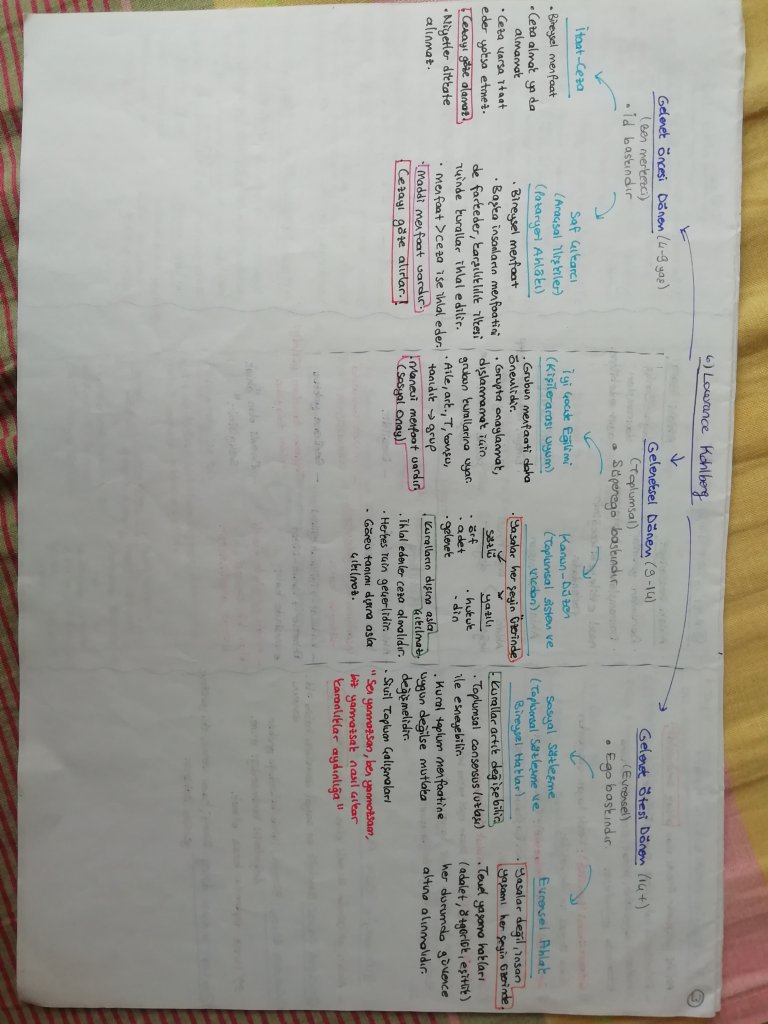 3
6) Lowrance Kohlberg
Gelenek Öncesi Dönem (4-9 yaş)
(Ben merkezci)
• İd baskındır
İtaat-Ceza
• Bireysel menfaat
• Ceza almak ya da
almamak
• Ceza varsa itaat
eder yoksa etmez.
• Cezayı göze alamaz.
• Niyetler dikkate
alınmaz.
Saf Çıkarcı
(Araçsal İlişkiler)
(Pazaryeri Ahlâkı)
• Bireysel menfaat
• Başka insanların menfaatini
de farkeder, karşılıklılık ilkesi
içinde kurallar ihlal edilir.
• menfaat > ceza ise ihlal eder.
• Maddi menfaat vardır.
Cezayı göze alırlar.!
Geleneksel Dönem (9-14)
(Toplumsal)
• Süperego baskındır
İyi Çocuk Eğilimi
(Kişilerarası uyum)
• Grubun menfaati daha
önemlidir.
• Grupta onaylanmak,
dışlanmamak için
grubun kurallarına uyar.
• Aile, ark., T, komşu,
tanıdık → grup
• Manevi menfaat vardır
(Sosyal Onay)
Kanun-Düzen
(Toplumsal sistem ve
vicdan)
• Yasalar her şeyin üzerinde
sözlü yazılı
• örf • hukuk
• adet • din
• gelenek
Kuralların dışına asla
çıkılmaz
• İhlal edenler ceza almalıdır.
• Herkes için geçerlidir.
• Görev tanımı dışına asla
çıkılmaz.
Gelenek Ötesi Dönem (14+)
(Evrensel)
• Ego baskındır.
Sosyal Sözleşme
(Toplumsal Sözleşme ve
Bireysel Haklar)
• Kurallar artık değişebilir.
• Toplumsal consensus (uzlaşı)
ile esneyebilir.
• Kural toplum menfaatine
uygun değilse mutlaka
değişmelidir.
• Sivil Toplum Çalışmaları
"Sen yanmazsan, ben yanmazsam,
biz yanmazsak nasıl çıkar
karanlıklar aydınlığa"
Evrensel Ahlak
• Yasalar değil, insan
yaşamı her şeyin üzerinde.
• Temel yaşama hakları
(adalet, özgürlük, eşitlik)
her durumda güvence
altına alınmalıdır.